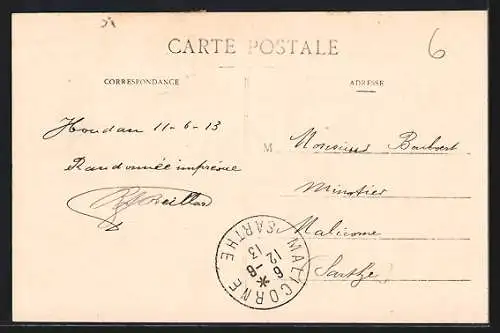 6
CARTE POSTALE
CORRESPONDANCE
ADRESSE
Houdan 11-6-13
Randonnée imprévue
M Monsieur Barbaert
Minotier
Malicorne
Sarthe
MALICORNE
SARTHE
6-6
12
13